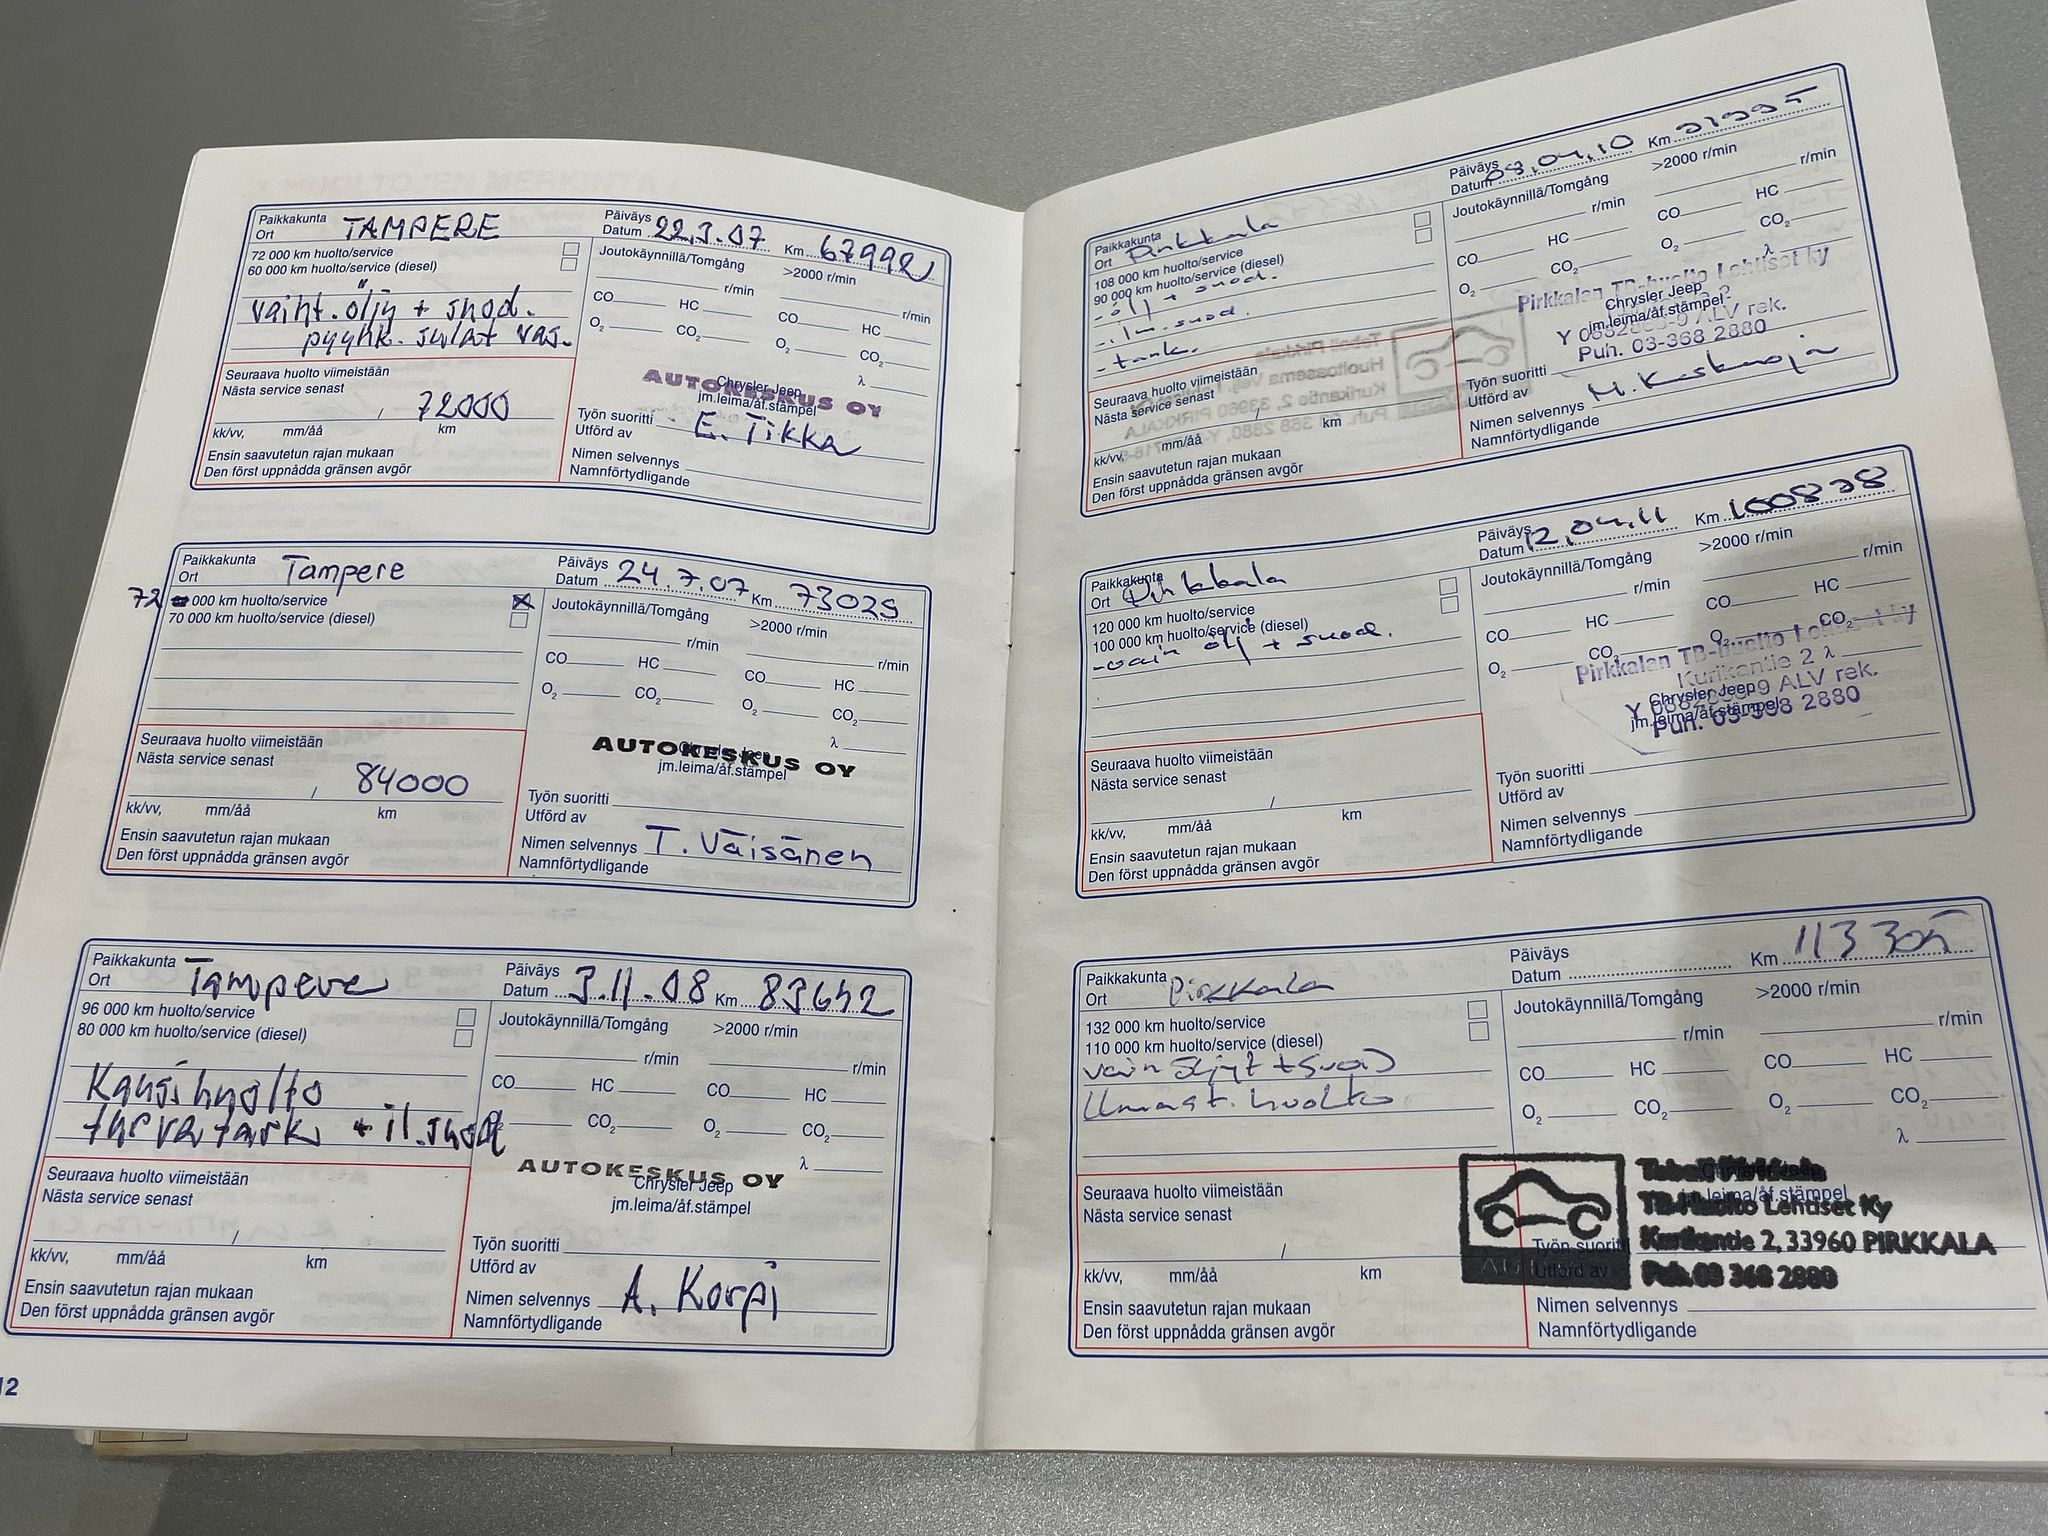 Paikkakunta TAMPERE
Ort
Päiväys 22.3.07 Km 67992
Datum
72 000 km huolto/service
60 000 km huolto/service (diesel)
vaiht. öljy + suod.
pyyhk. sulat vas.
Joutokäynnillä/Tomgång >2000 r/min
r/min r/min
CO HC CO HC
O2 CO2 O2 CO2
λ
AUTOKESKUS OY
Chrysler Jeep
jm.leima/åf.stämpel
Seuraava huolto viimeistään
Nästa service senast
/ 72000
kk/vv, mm/åå km
Ensin saavutetun rajan mukaan
Den först uppnådda gränsen avgör
Työn suoritti E. Tikka
Utförd av
Nimen selvennys
Namnförtydligande
Paikkakunta Tampere
Ort
Päiväys
Datum 24.7.07 Km 73025
72 000 km huolto/service
70 000 km huolto/service (diesel)
Joutokäynnillä/Tomgång >2000 r/min
r/min r/min
CO HC CO HC
O2 CO2 O2 CO2
λ
AUTOKESKUS OY
Chrysler Jeep
jm.leima/åf.stämpel
Seuraava huolto viimeistään
Nästa service senast
/ 84000
kk/vv, mm/åå km
Ensin saavutetun rajan mukaan
Den först uppnådda gränsen avgör
Työn suoritti
Utförd av
Nimen selvennys T. Väisänen
Namnförtydligande
Paikkakunta Tampere
Ort
Päiväys
Datum 3.11.08 Km 83642
96 000 km huolto/service
80 000 km huolto/service (diesel)
Kausihuolto
turvatark + il.suod
Joutokäynnillä/Tomgång >2000 r/min
r/min r/min
CO HC CO HC
O2 CO2 O2 CO2
λ
AUTOKESKUS OY
Chrysler Jeep
jm.leima/åf.stämpel
Seuraava huolto viimeistään
Nästa service senast
/
kk/vv, mm/åå km
Ensin saavutetun rajan mukaan
Den först uppnådda gränsen avgör
Työn suoritti
Utförd av
Nimen selvennys A. Korpi
Namnförtydligande
12
Paikkakunta
Ort Pirkkala
Päiväys
Datum 08.04.10 Km
108 000 km huolto/service
90 000 km huolto/service (diesel)
- öljy + suod.
- ilm.suod.
- tark.
Joutokäynnillä/Tomgång >2000 r/min
r/min r/min
CO HC CO HC
O2 CO2 O2 CO2
λ
Pirkkalan TB-huolto Lehtiset ky
Chrysler Jeep
jm.leima/åf.stämpel
ALV rek.
Puh. 03-368 2880
Seuraava huolto viimeistään
Nästa service senast
/
kk/vv, mm/åå km
Ensin saavutetun rajan mukaan
Den först uppnådda gränsen avgör
Työn suoritti
Utförd av
Nimen selvennys
Namnförtydligande
Paikkakunta
Ort Pirkkala
Päiväys
Datum 12.04.11 Km 100838
120 000 km huolto/service
100 000 km huolto/service (diesel)
- vain öljy + suod.
Joutokäynnillä/Tomgång >2000 r/min
r/min r/min
CO HC CO HC
O2 CO2 O2 CO2
λ
Pirkkalan TB-huolto Lehtiset ky
Kurikantie 2
Chrysler Jeep
ALV rek.
jm.leima/åf.stämpel
Puh. 03-368 2880
Seuraava huolto viimeistään
Nästa service senast
/
kk/vv, mm/åå km
Ensin saavutetun rajan mukaan
Den först uppnådda gränsen avgör
Työn suoritti
Utförd av
Nimen selvennys
Namnförtydligande
Paikkakunta Pirkkala
Ort
Päiväys
Datum Km 113305
132 000 km huolto/service
110 000 km huolto/service (diesel)
vain öljyt + suod
Ilmast. huolto
Joutokäynnillä/Tomgång >2000 r/min
r/min r/min
CO HC CO HC
O2 CO2 O2 CO2
λ
Chrysler Jeep
jm.leima/åf.stämpel
TB-Huolto Lehtiset Ky
Kurikantie 2, 33960 PIRKKALA
Puh. 03 368 2880
Seuraava huolto viimeistään
Nästa service senast
/
kk/vv, mm/åå km
Ensin saavutetun rajan mukaan
Den först uppnådda gränsen avgör
Työn suoritti
Utförd av
Nimen selvennys
Namnförtydligande